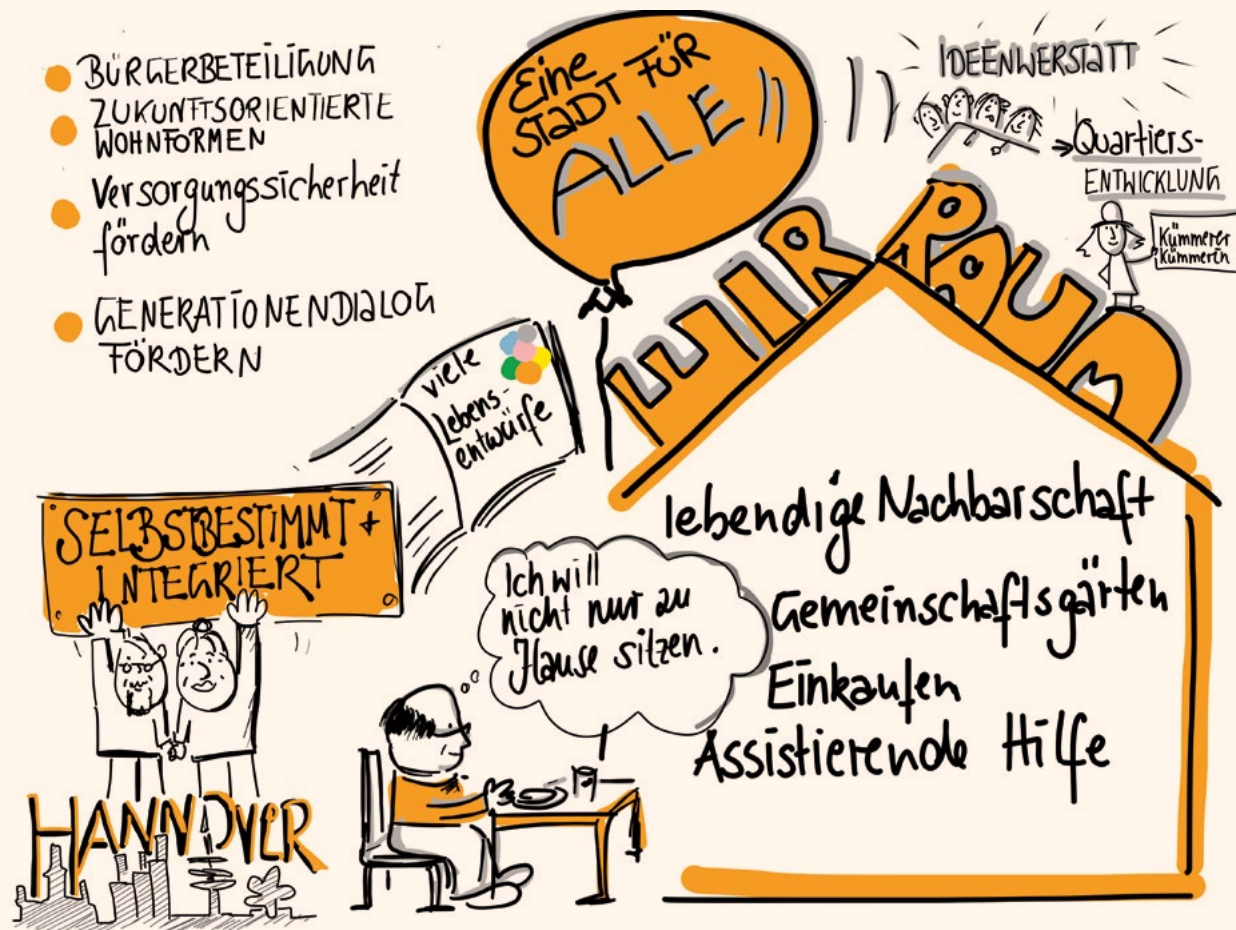 BÜRGERBETEILIGUNG
ZUKUNFTSORIENTIERTE
WOHNFORMEN
Versorgungssicherheit
fördern
GENERATIONENDIALOG
FÖRDERN
Eine
STADT FÜR
ALLE
IDEENWERSTATT
Quartiers-
ENTWICKLUNG
Kümmerer
Kümmerin
WIR RAUM
viele
Lebens-
entwürfe
SELBSTBESTIMMT +
INTEGRIERT
Ich will
nicht nur zu
Hause sitzen.
lebendige Nachbarschaft
Gemeinschaftsgärten
Einkaufen
Assistierende Hilfe
HANNOVER